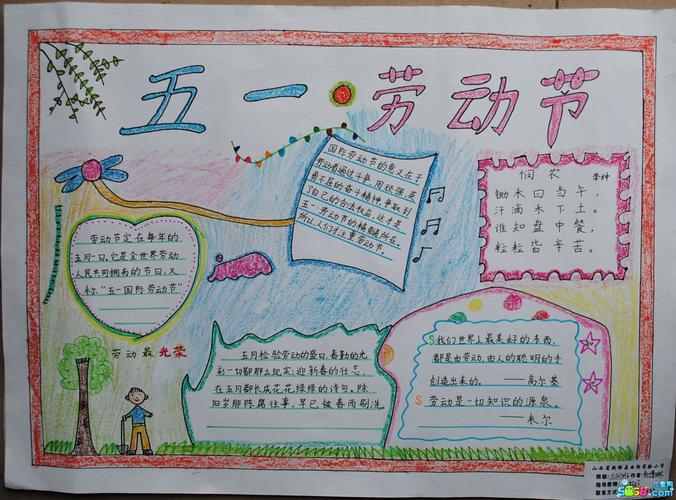 五一·劳动节
国际劳动节的意义在于
劳动者通过斗争,用顽强、英
勇不屈的奋斗精神,争取到
了自己的合法权益,这才是
五一劳动节的精髓所在。
所以人们才注重劳动节。
悯农
李绅
锄禾日当午,
汗滴禾下土。
谁知盘中餐,
粒粒皆辛苦。
劳动节定在每年的
五月一日,它是全世界劳动
人民共同拥有的节日,又
称“五一国际劳动节”
劳动最光荣
五月检验劳动的盛日,喜勤的光
彩一切都那么现实;迎新春的壮志,
在五月都长成花花绿绿的诗句。除
旧岁那陈腐往事,早已被春雨剔洗。
我们世界上最美好的东西,
都是由劳动、由人的聪明的手
创造出来的。——高尔基
劳动是一切知识的源泉。
——米尔
山西省新绛县西街实验小学
班级:
作者:
指导教师:
联系方式